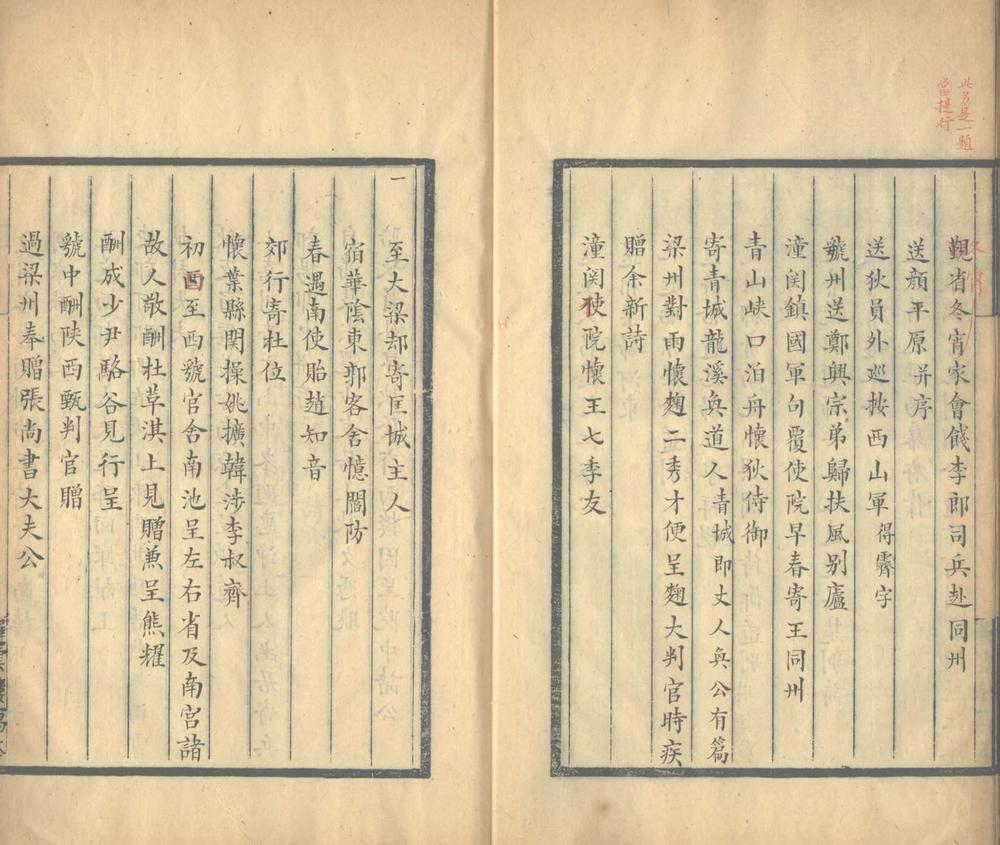 此另是一題
當提行
冬宵
覲省冬宵家會餞李郎司兵赴同州
送顏平原并序
送狄員外巡按西山軍得霽字
虢州送鄭興宗弟歸扶風别廬
潼関鎮國軍句覆使院早春寄王同州
青山峽口泊舟懷狄侍御
寄青城龍溪奐道人青城即丈人奐公有篇
梁州對雨懷麴二秀才便呈麴大判官時疾
贈余新詩
潼関使院懷王七季友
一
至大梁却寄匡城主人
宿華陰東郭客舍憶閻防
春遇南使貽趙知音
郊行寄杜位
懷葉縣関操姚擴韓涉李叔齊
初至西虢官舍南池呈左右省及南宮諸
故人敬酬杜華淇上見贈兼呈熊耀
酬成少尹駱谷見行呈
虢中酬陝西甄判官贈
過梁州奉贈張尚書大夫公